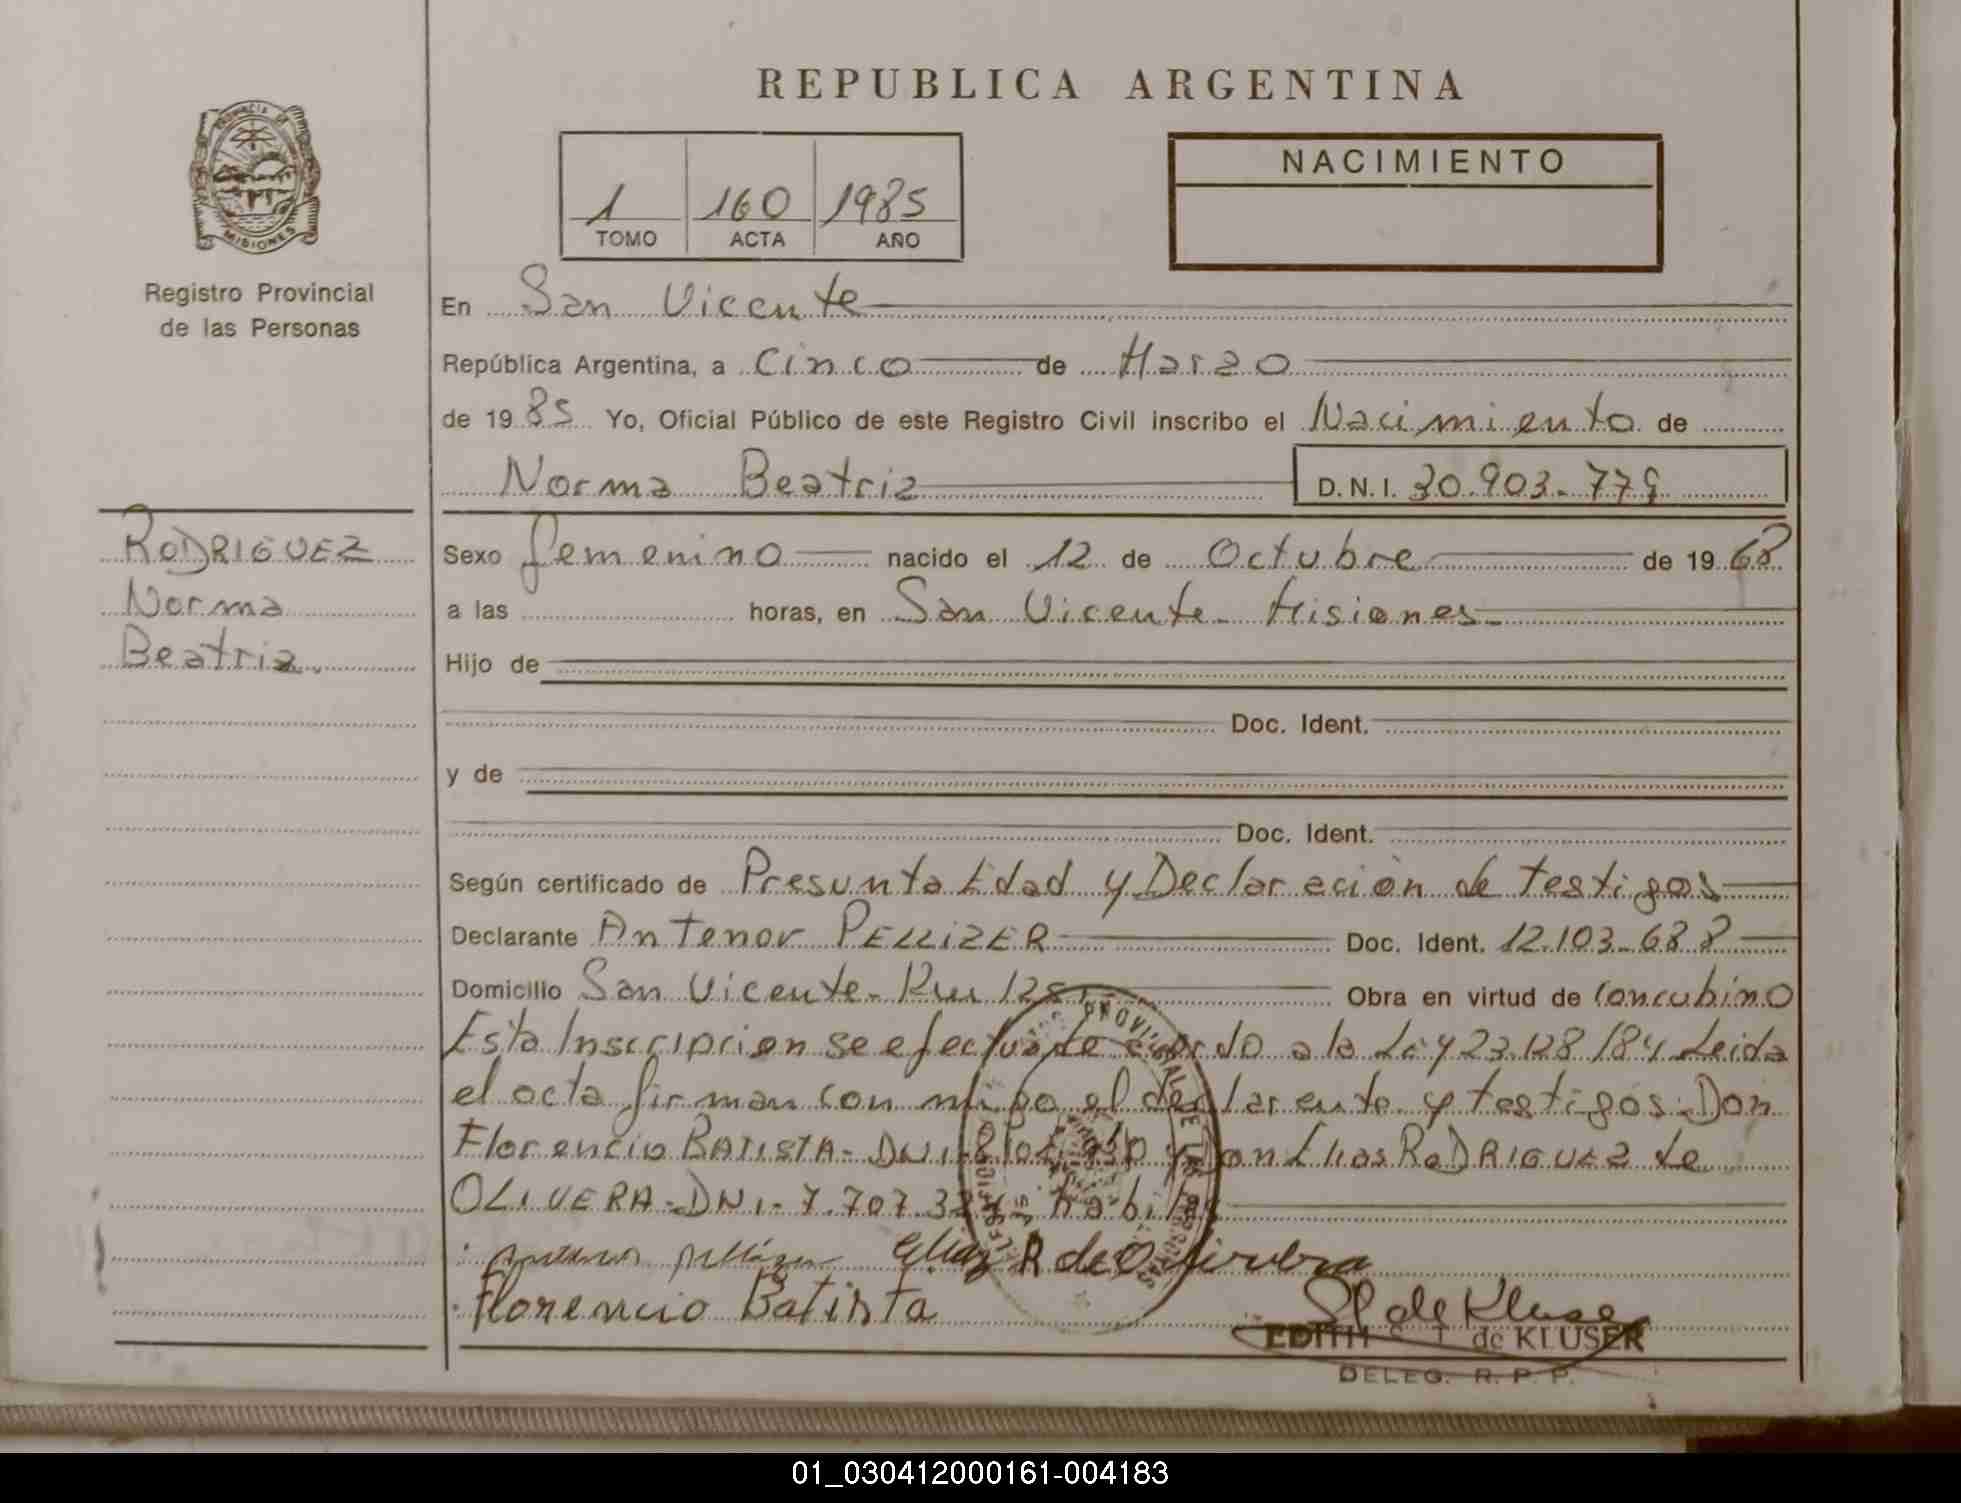 REPUBLICA ARGENTINA
PROVINCIA DE
MISIONES
Registro Provincial
de las Personas
1 160 1985
TOMO ACTA AÑO
NACIMIENTO
En San Vicente
República Argentina, a Cinco de Marzo
de 1985 Yo, Oficial Público de este Registro Civil inscribo el Nacimiento de
Norma Beatriz D.N.I. 30.903.779
RODRIGUEZ
Norma
Beatriz.
Sexo femenino nacido el 12 de Octubre de 1968
a las horas, en San Vicente - Misiones-
Hijo de
Doc. Ident.
y de
Doc. Ident.
Según certificado de Presunta Edad y Declaración de testigos
Declarante Antenor PELLIZER Doc. Ident. 12.103.688
Domicilio San Vicente - Obra en virtud de Concubino
Esta Inscripcion se efectua de a la Ley 23.128/84 Leida
el acta firman con migo el declarente y testigos: Don
Florencio BATISTA - DNI y Don RODRIGUEZ de
OLIVERA - DNI - 7.707. habiles
R de Olivera
Florencio Batista
de Kluser
EDITH de KLUSER
DELEG. R. P. P.
01_030412000161-004183